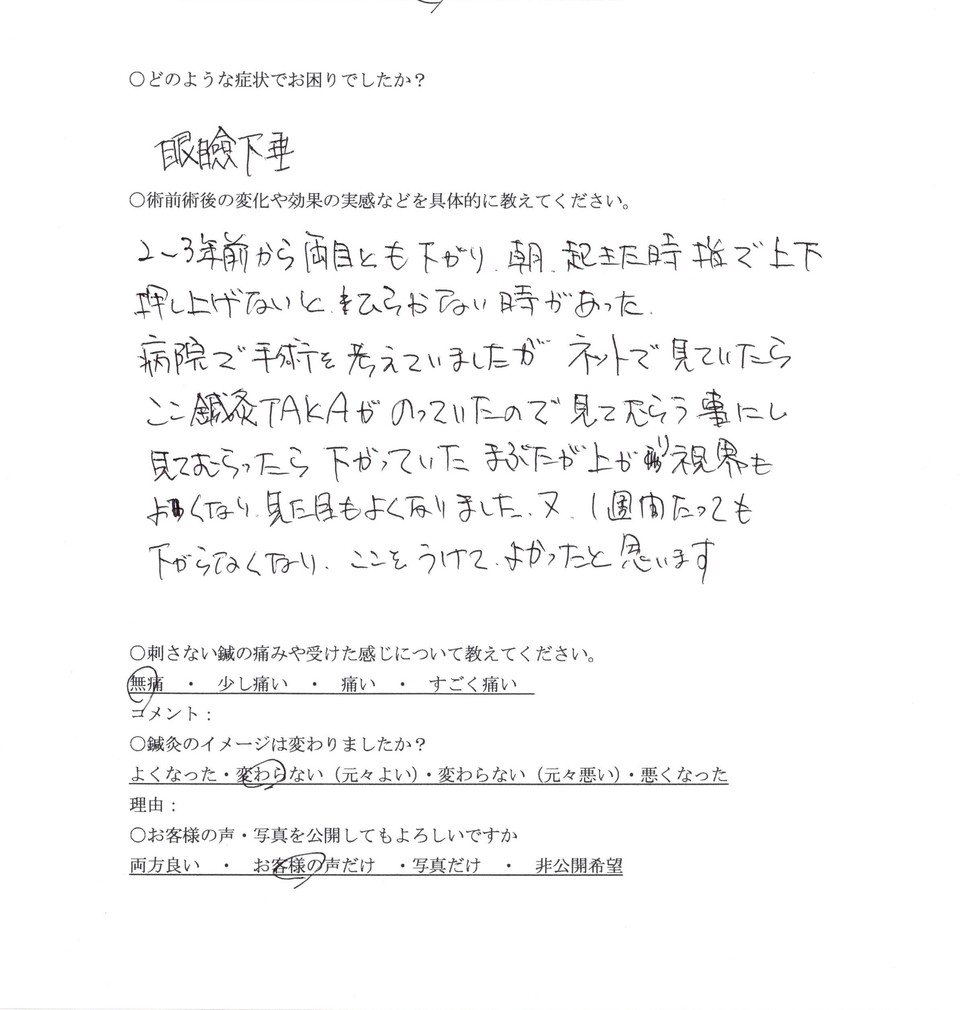 ○どのような症状でお困りでしたか？
眼瞼下垂
○術前術後の変化や効果の実感などを具体的に教えてください。
2~3年前から両目とも下がり、朝、起きた時指で上下
押し上げないと、ひらかない時があった。
病院で手術を考えていましたが ネットで見ていたら
ここ鍼灸TAKAがのっていたので見てもらう事にし
見てもらったら 下がっていた まぶたが上がり視界も
よくなり、見た目もよくなりました、又、1週間たっても
下がらなくなり、ここをうけて、よかったと思います
○刺さない鍼の痛みや受けた感じについて教えてください。
無痛 ・ 少し痛い ・ 痛い ・ すごく痛い
コメント：
○鍼灸のイメージは変わりましたか？
よくなった・変わらない（元々よい）・変わらない（元々悪い）・悪くなった
理由：
○お客様の声・写真を公開してもよろしいですか
両方良い ・ お客様の声だけ ・写真だけ ・ 非公開希望